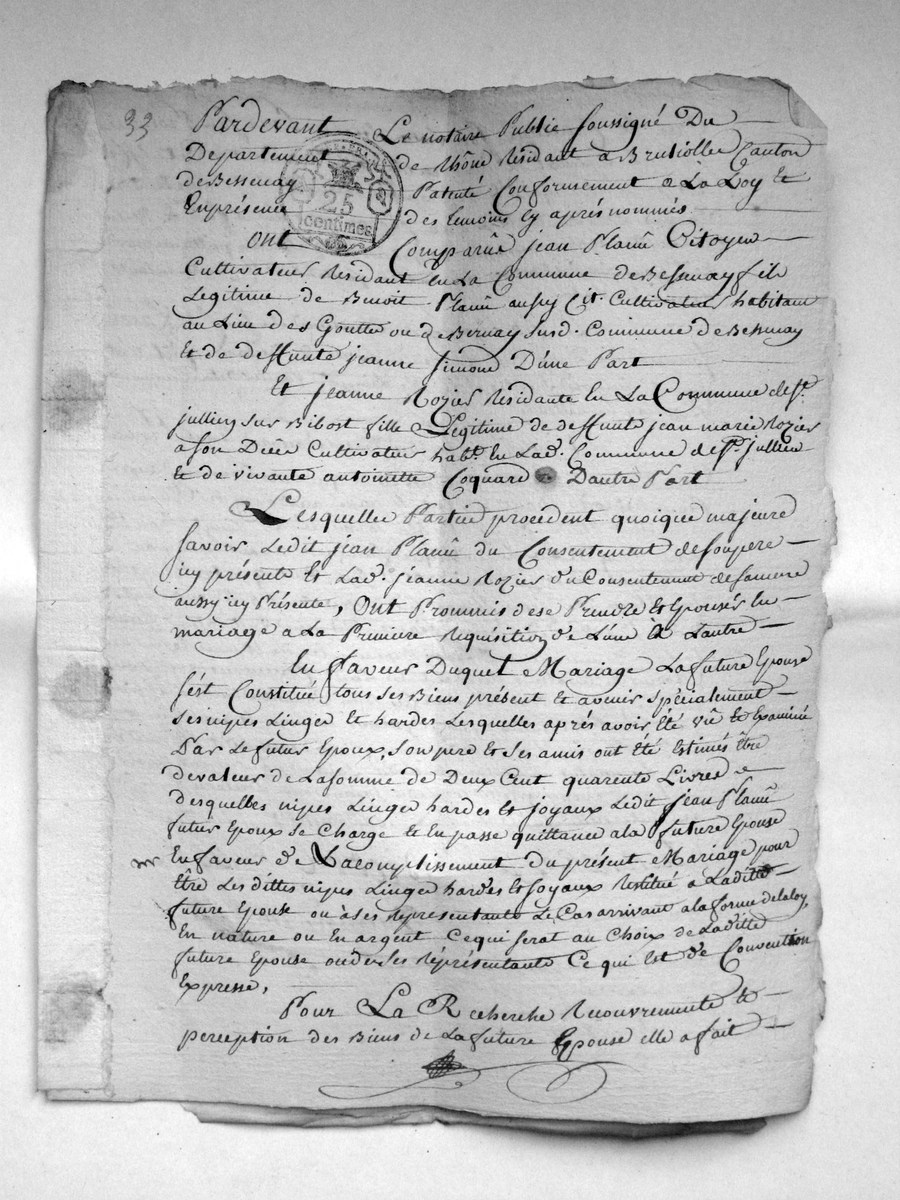 33
Pardevant Le notaire Public soussigné Du
Departement de Rhône Residant a Brusiolle Canton
de Bessenay Patenté Conformement a La Loy Et
En présence des temoins Cy aprés nommés
25
centimes
Ont Comparûe jean Citoyen
Cultivateur Residant En La Commune de Bessenay fils
Legitime de Benoit aussy Cit. Cultivateur habitant
au Lieu des Goutte ou de Bernay susd. Commune de Bessenay
Et de deffunte jeanne Simone D'une Part
Et jeanne Rozier Residante En La Commune de St.
jullien sur Bibost fille Legitime de deffunt jean marie Rozier
a son Décé Cultivateur habt. En Lad. Commune de St. jullien
Et de vivante antoinette Coquard D'autre Part
Lesquelles Partie procedent quoique majeure
savoir Ledit jean du Consentement de son pere
icy présente Et Lad. jeanne Rozier du Consentement de sa mere
aussy icy Présente, Ont Prommis de se Prendre Et Epouser En
mariage a La Premiere Requisition de L'une a L'autre
En faveur Duquel Mariage La future Epouse
s'est Constitué tous ses Biens présent Et avenir spécialement
ses nipes Linger Et hardes Lesquelles aprés avoir Eté vû Et Examiné
Par Le futur Epoux, son pere Et ses amis ont Eté Estimés Être
de valeur de La somme de Deux Cent quarente Livres
desquelles nipes Linger hardes Et joyaux Ledit jean
futur Epoux se Charge Et En passe quittance a la future Epouse
En faveur de L'acomplissement Du présent Mariage pour
Être Les dittes nipes Linger hardes Et joyaux Restitué a Laditte
future Epouse ou à ses représentants Le Cas arrivant a la forme de la loy,
En nature ou En argent Ce qui serat au Choix de Laditte
future Epouse ou de ses Représentants Ce qui Est de Convention
Expresse,
Pour La Recherche Recouvrements Et
perception des Biens de La future Epouse elle a fait